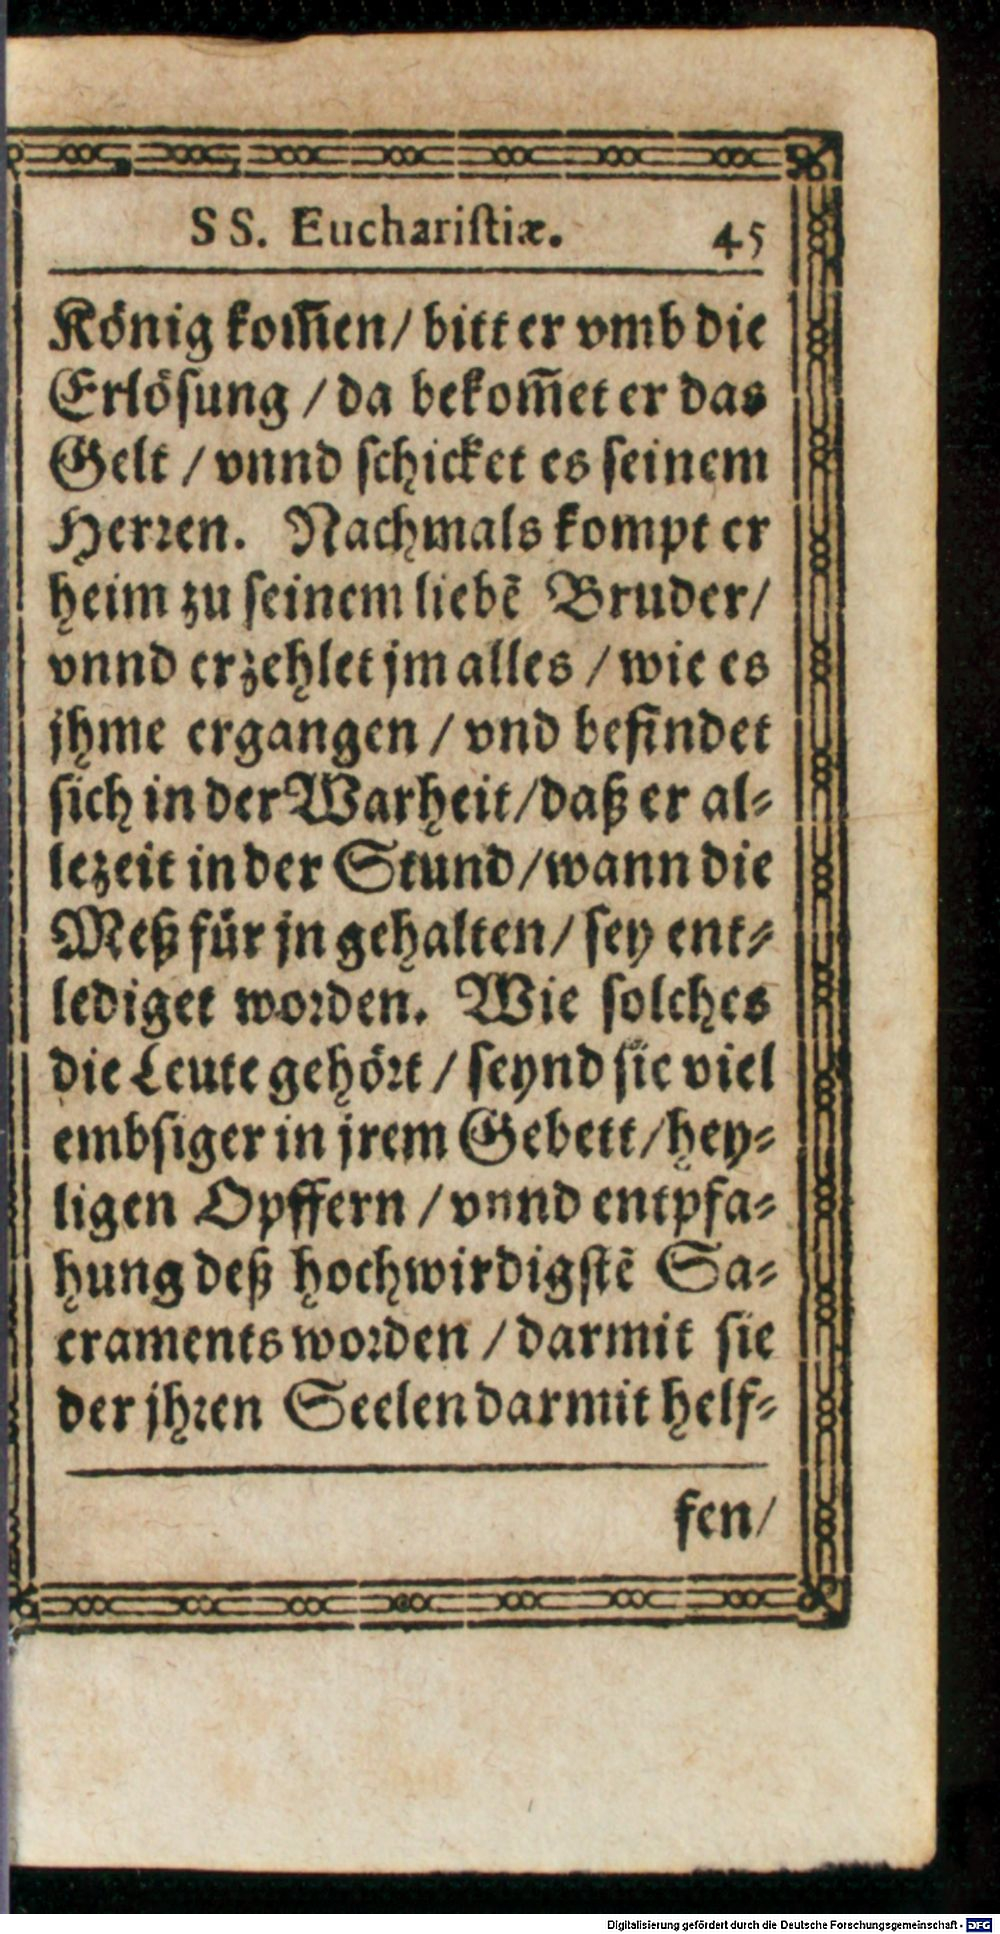 SS. Euchariſtiæ. 45
König kom̃en/ bitt er vmb die
Erlöſung / da bekom̃et er das
Gelt / vnnd ſchicket es ſeinem
Herꝛen. Nachmals kompt er
heim zu ſeinem liebẽ Bruder/
vnnd erzehlet jm alles / wie es
jhme ergangen / vnd befindet
ſich in der Warheit/daß er al⸗
lezeit in der Stund/wann die
Meß für jn gehalten/ ſey ent⸗
lediget woꝛden. Wie ſolches
die Leute gehöꝛt / ſeynd ſie viel
embſiger in jrem Gebett/hey⸗
ligen Opffern / vnnd entpfa⸗
hung deß hochwirdigſtẽ Sa⸗
craments woꝛden / darmit ſie
der jhꝛen Seelen darmit helf⸗
fen/
Digitalisierung gefördert durch die Deutsche Forschungsgemeinschaft - DFG